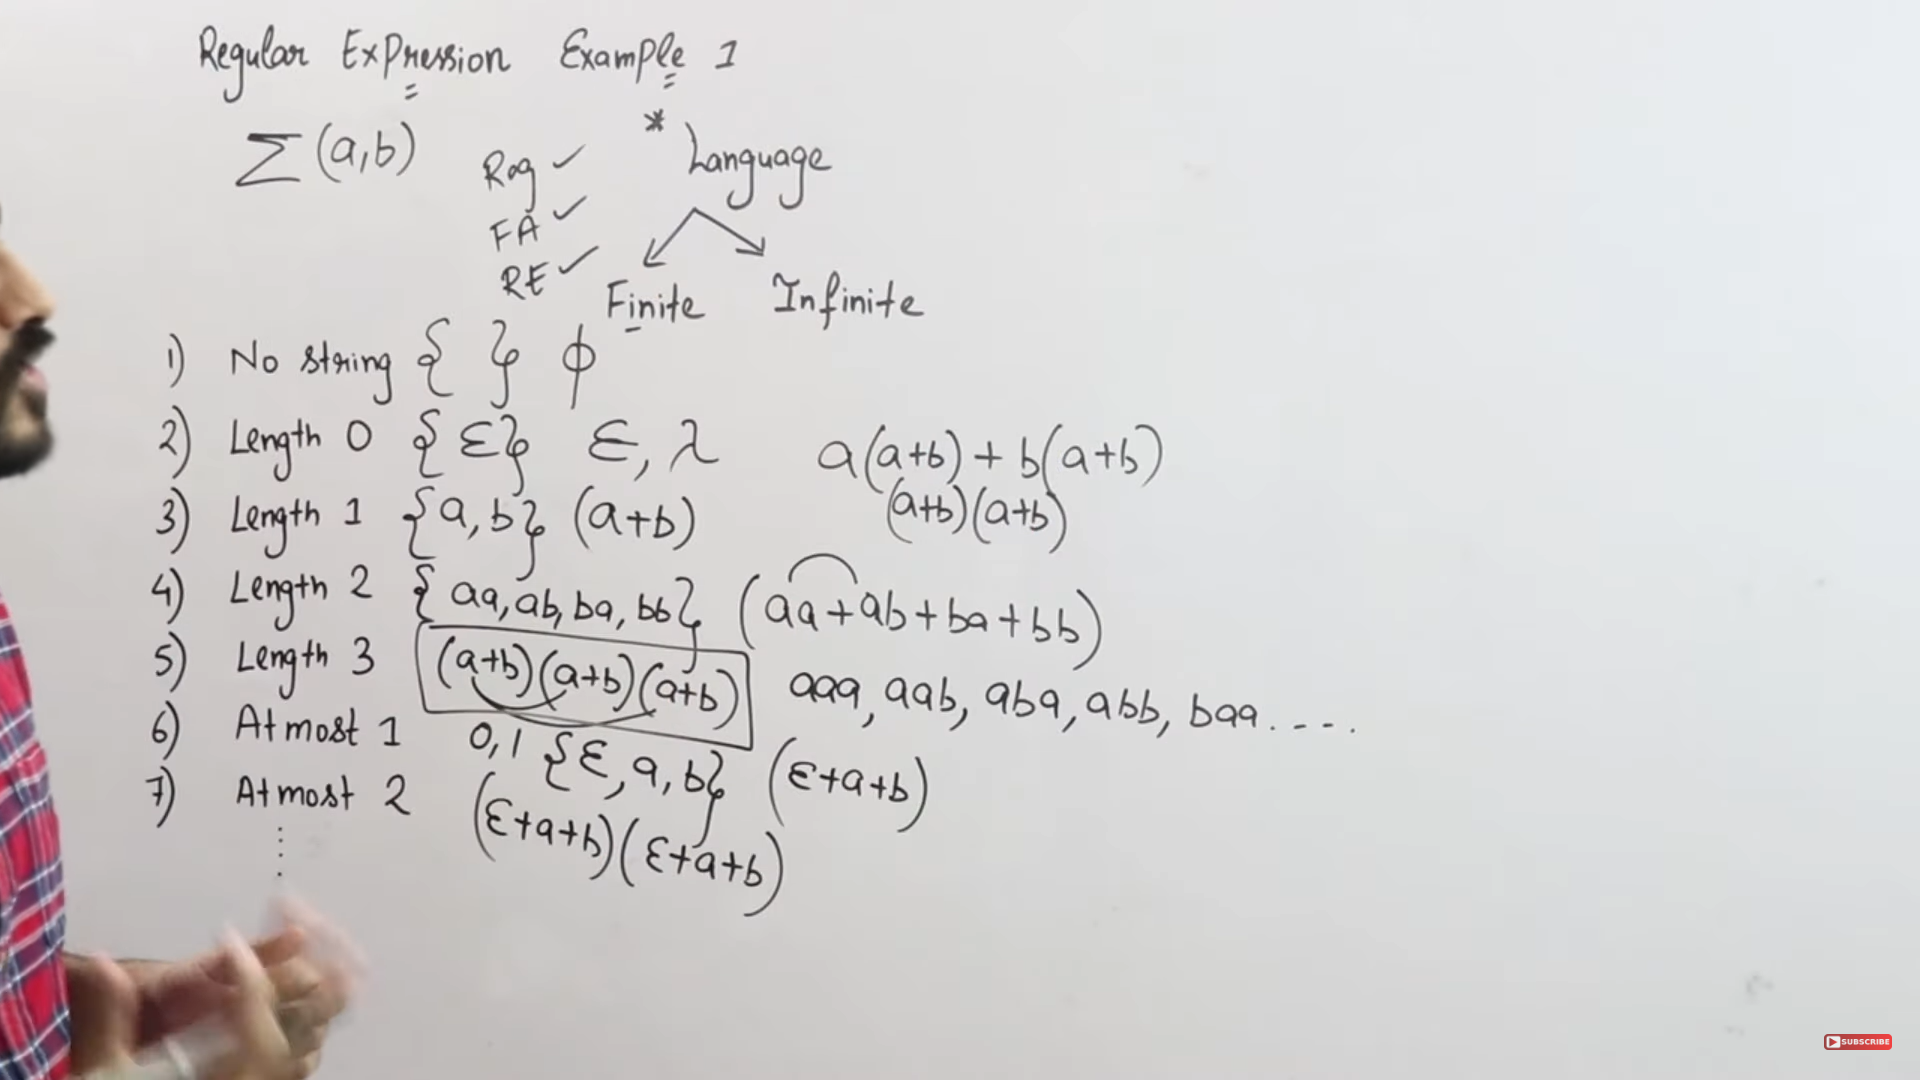 Regular Expression Example 1
∑(a,b)
* Language
Reg ✓
FA ✓
RE ✓
Finite Infinite
1) No string { } ϕ
2) Length 0 {ε} ε, λ
a(a+b) + b(a+b)
(a+b)(a+b)
3) Length 1 {a, b} (a+b)
4) Length 2 {aa, ab, ba, bb} (aa+ab+ba+bb)
5) Length 3 (a+b)(a+b)(a+b) aaa, aab, aba, abb, baa....
6) Atmost 1 0,1 {ε, a, b} (ε+a+b)
7) Atmost 2 (ε+a+b)(ε+a+b)
SUBSCRIBE